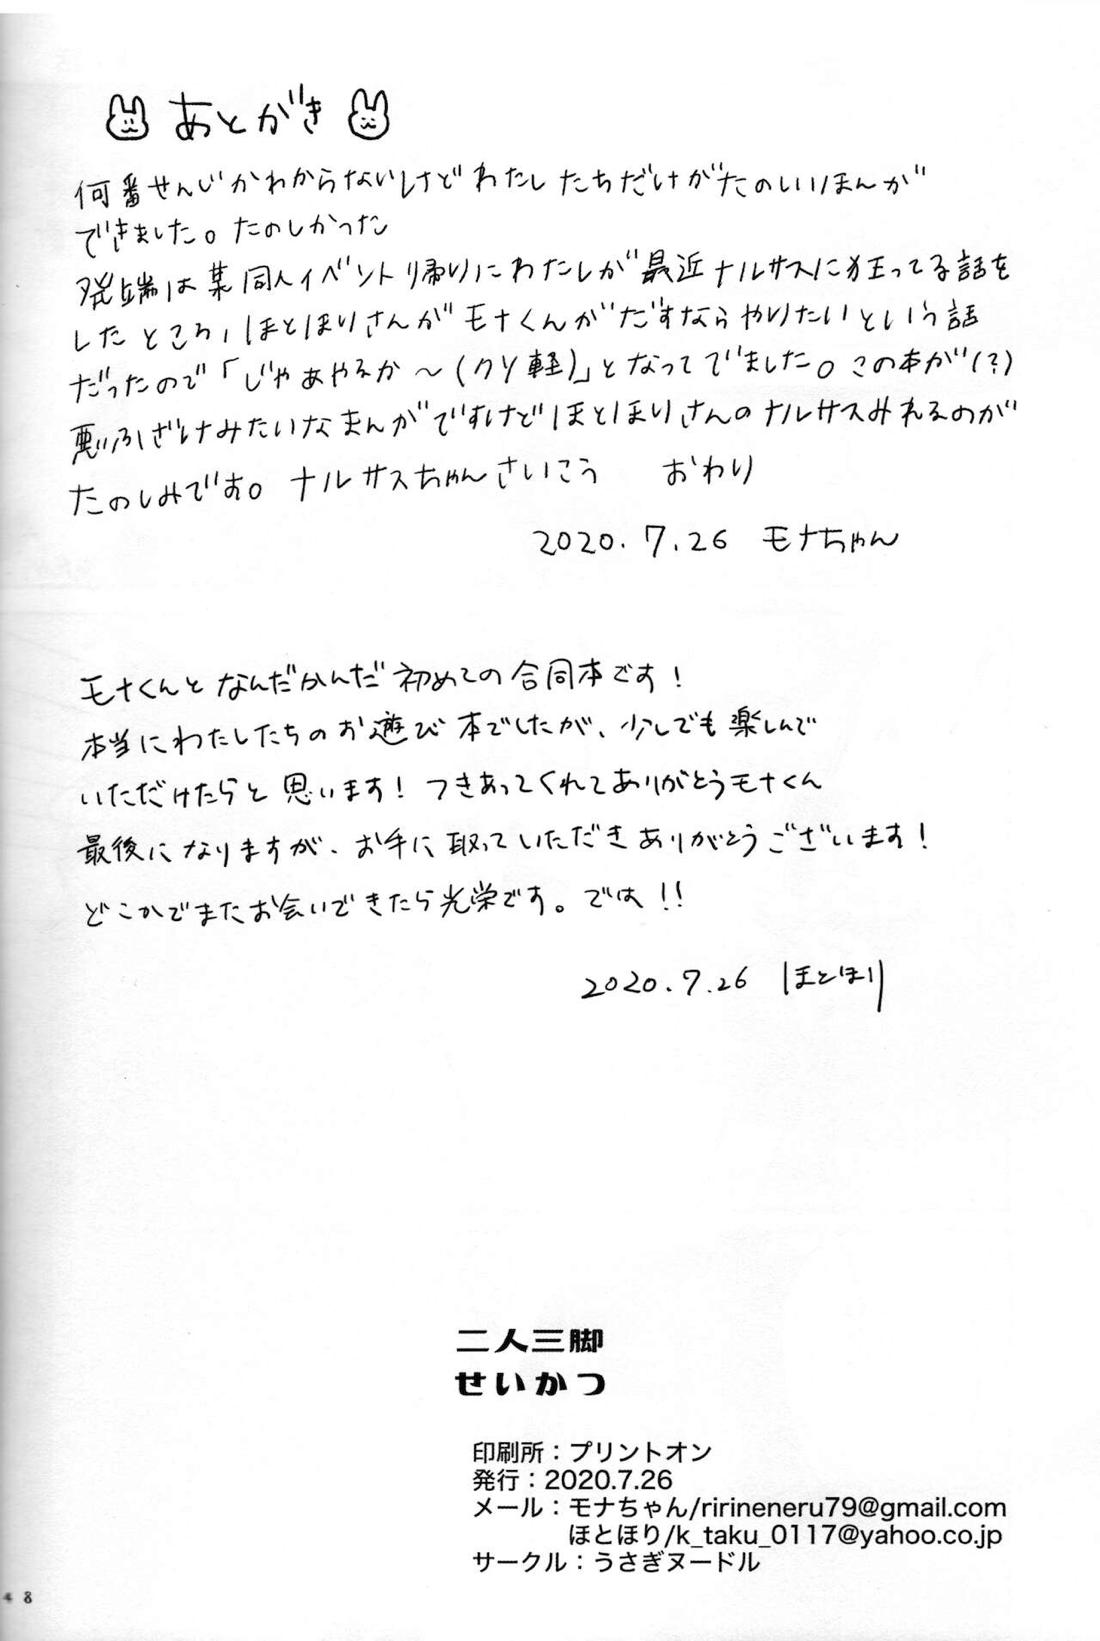 あとがき
何番せんじかわからないけどわたしたちだけがたのしいほんが
できました。たのしかった
発端は某同人イベント帰りにわたしが最近ナルサスに狂ってる話を
したところ、ほとほりさんがモナくんがだすならやりたいという話
だったので「じゃあやるか～(クソ軽)」となってでました。この本が(?)
悪ふざけみたいなまんがですけどほとほりさんのナルサスみれるのが
たのしみです。ナルサスちゃんさいこう おわり
2020.7.26 モナちゃん
モナくんとなんだかんだ初めての合同本です!
本当にわたしたちのお遊び本でしたが、少しでも楽しんで
いただけたらと思います! つきあってくれてありがとうモナくん
最後になりますが、お手に取っていただきありがとうございます!
どこかでまたお会いできたら光栄です。では!!
2020.7.26 ほとほり
二人三脚
せいかつ
印刷所:プリントオン
発行:2020.7.26
メール:モナちゃん/ririneneru79@gmail.com
ほとほり/k_taku_0117@yahoo.co.jp
サークル:うさぎヌードル
48